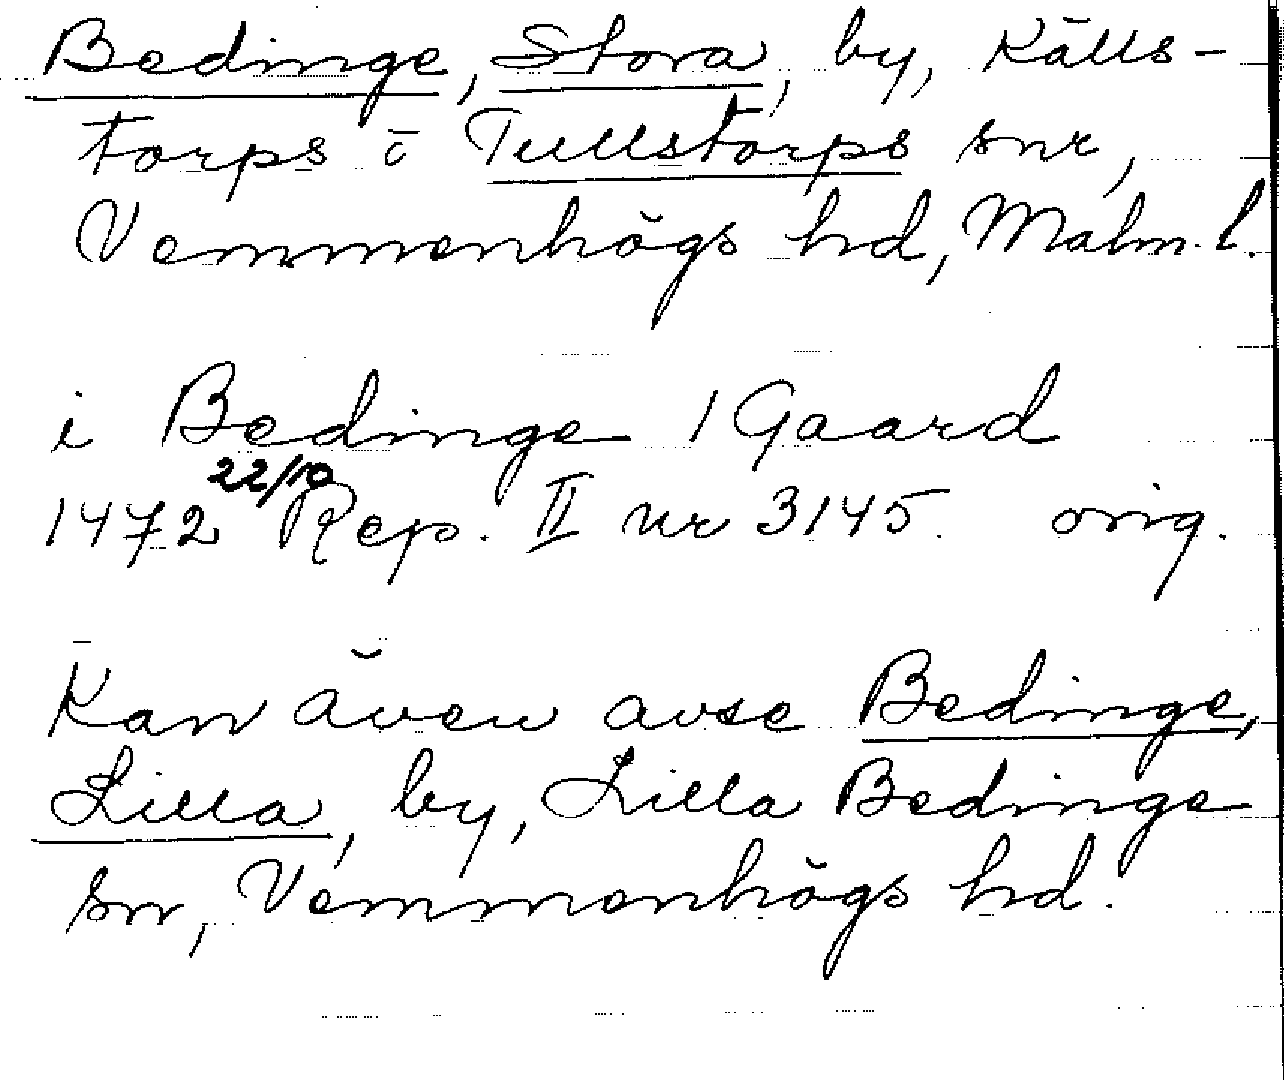 Bedinge, Stora, by, Källs-
torps o Tullstorps snr,
Vemmenhögs hd, Malm. l.
i Bedinge 1 Gaard
1472 22/10 Rep. II nr 3145. orig.
Kan även avse Bedinge,
Lilla, by, Lilla Bedinge
sn, Vemmenhögs hd.